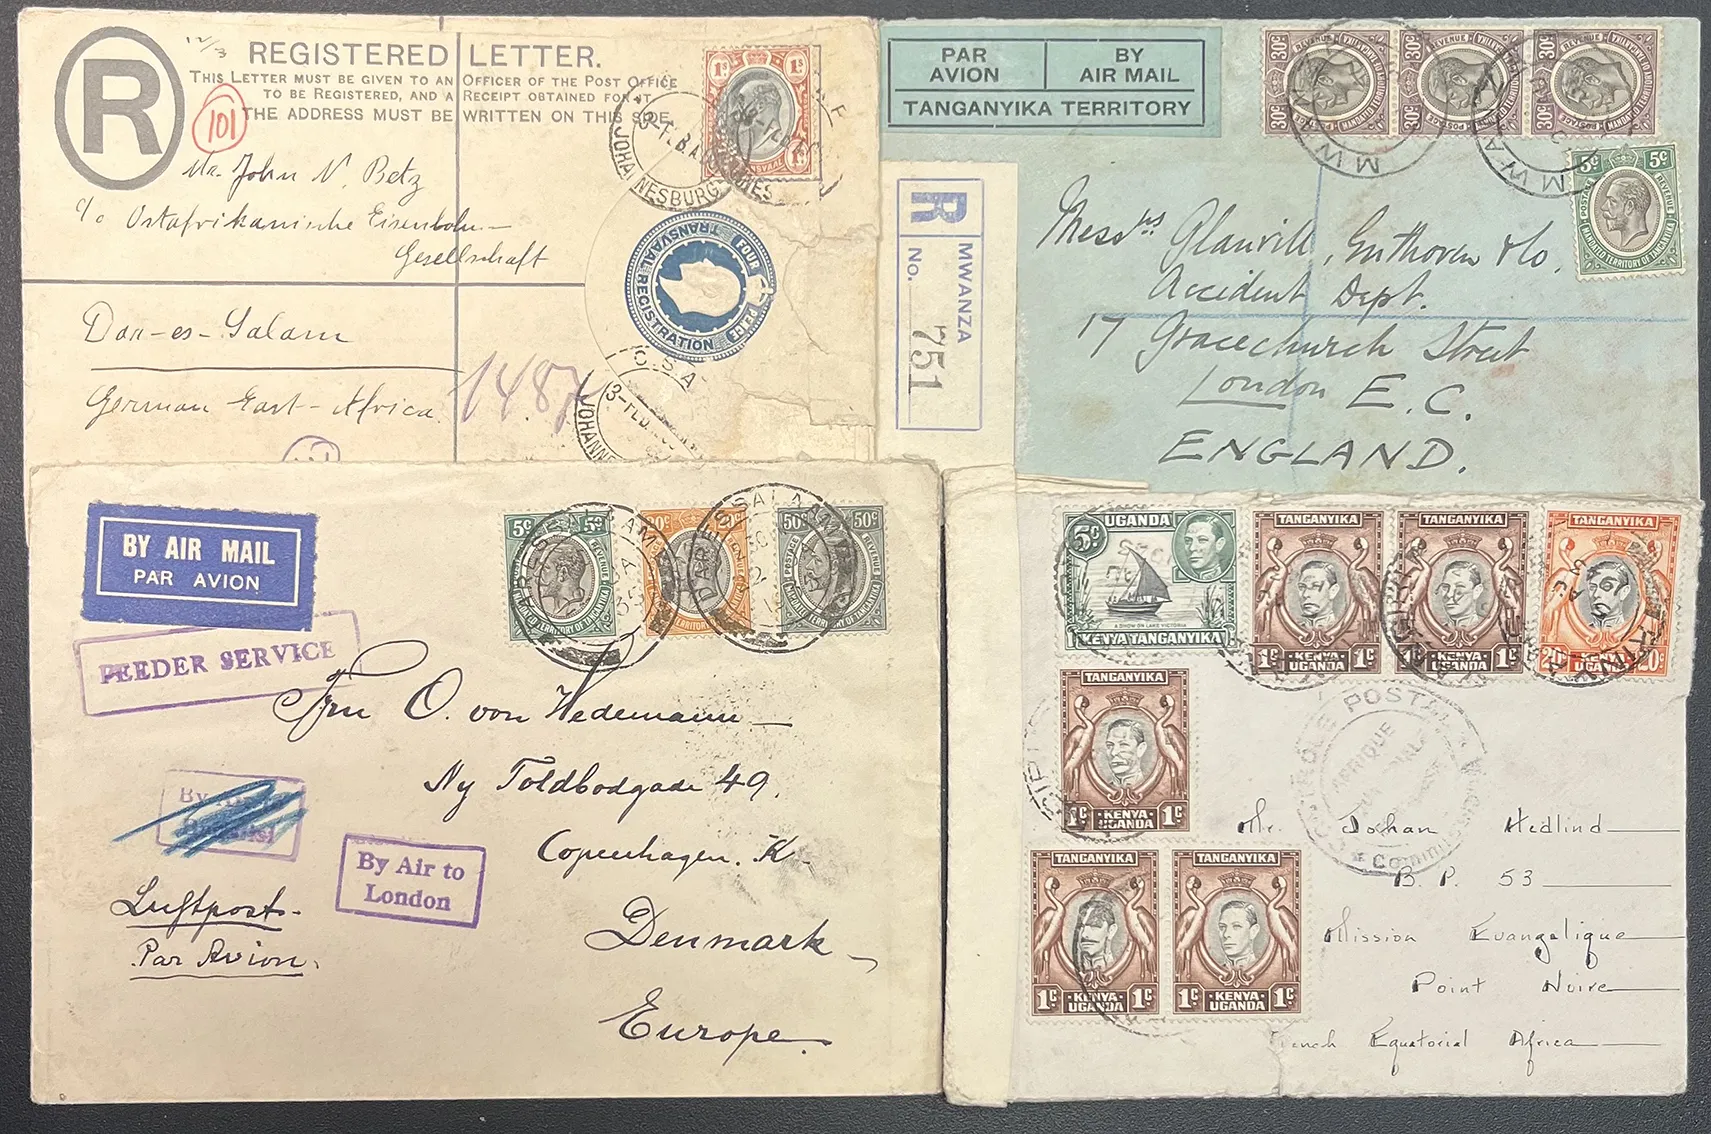 12/3
REGISTERED LETTER.
THIS LETTER MUST BE GIVEN TO AN OFFICER OF THE POST OFFICE
TO BE REGISTERED, AND A RECEIPT OBTAINED FOR IT.
THE ADDRESS MUST BE WRITTEN ON THIS SIDE.
R
101
Mr. John N. Betz
c/o Ostafrikanische Eisenbahn-
Gesellschaft
Dar-es-Salam
German East-Africa
1s 1s
JOHANNESBURG
TRANSVAAL REGISTRATION
FOUR PENCE
PAR AVION
BY AIR MAIL
TANGANYIKA TERRITORY
R
MWANZA
No. 751
30c 30c 30c
30c 30c 30c
5c 5c
POSTAGE REVENUE
MANDATED TERRITORY OF TANGANYIKA
Messrs Glanvill, Enthoven & Co,
Accident Dept.
17 Gracechurch Street
London E.C.
ENGLAND.
BY AIR MAIL
PAR AVION
FEEDER SERVICE
5c 5c
20c
50c 50c
Frn O. von Hedemann
Ny Toldbodgade 49.
Copenhagen. K.
Denmark
Europe.
By Air to
London
Luftpost-
Par Avion.
UGANDA
5c
A DHOW ON LAKE VICTORIA
KENYA TANGANYIKA
TANGANYIKA
1c KENYA UGANDA 1c
TANGANYIKA
1c KENYA UGANDA 1c
TANGANYIKA
20c KENYA UGANDA 20c
TANGANYIKA
1c KENYA UGANDA 1c
TANGANYIKA
1c KENYA UGANDA 1c
TANGANYIKA
1c KENYA UGANDA 1c
POSTAL
AFRIQUE
Mr. Johan Hedlind
B. P. 53
Mission Evangelique
Point Noire
French Equatorial Africa